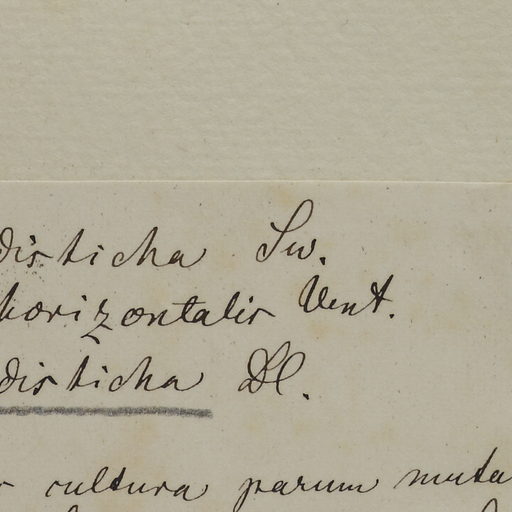 disticha Sw.
horizontalis Vent.
disticha Bl.
cultura parum muta